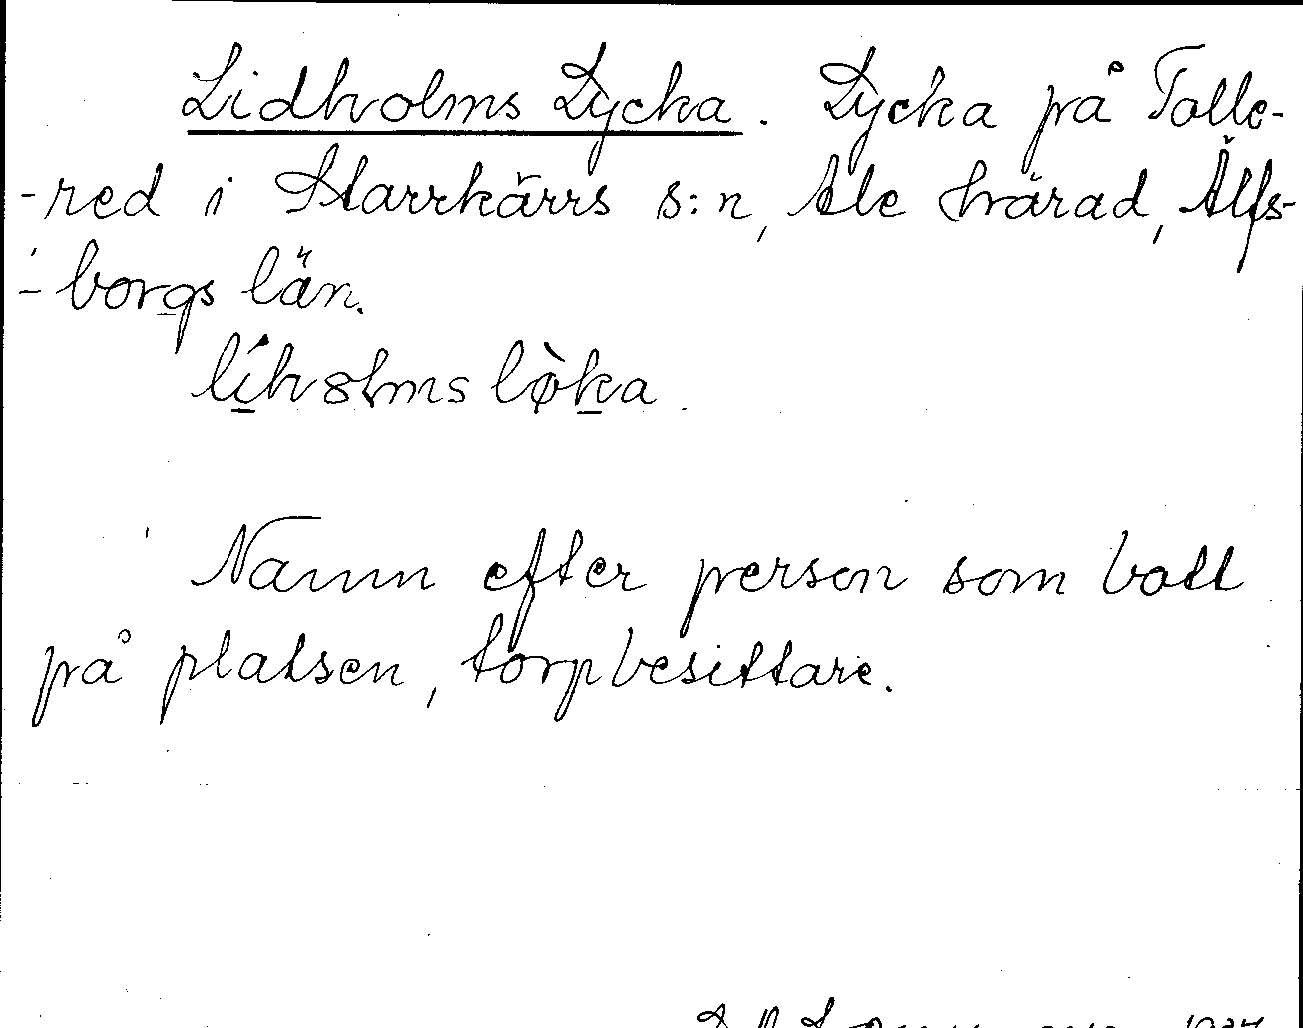 Lidholms Lycka. Lycka på Tolle-
-red i Starrkärrs s:n, Ale härad, Älfs-
-borgs län.
líholms lø̀ka.
Namn efter person som bott
på platsen, torpbesittare.